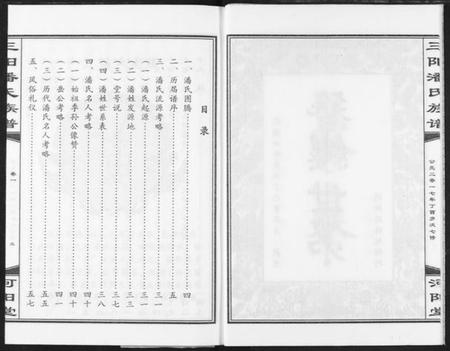 三阳潘氏族谱
公元二零一七年丁酉岁次七修
河阳堂
目录
一、潘氏图腾……………四
二、历届谱序……………五
三、潘氏流源考略……………三一
(一)潘氏起源……………三一
(二)潘姓发源地……………三三
(三)堂号说……………三七
(四)潘姓世系表……………三八
四、潘氏名人考略……………四十
(一)始祖季孙公像赞……………四十
(二)岳公考略……………四一
(三)历代潘氏名人考略……………五五
五、风俗礼仪……………五七
三阳潘氏族谱
卷一
河阳堂